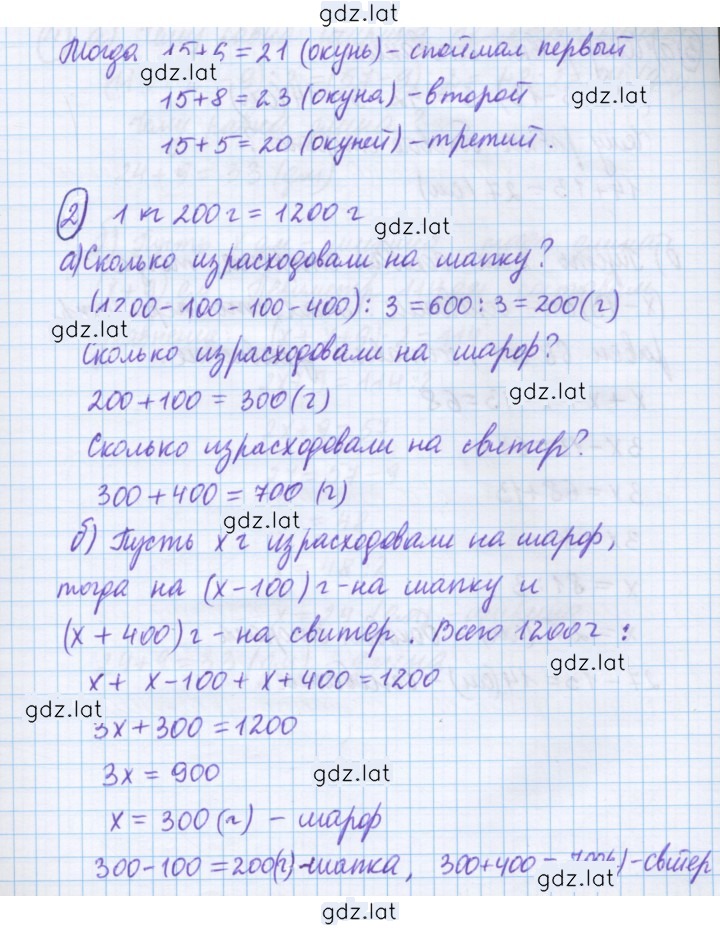 gdz.lat
Тогда 15+6=21 (окунь) - споймал первый
gdz.lat
15+8=23 (окуна) - второй
gdz.lat
15+5=20 (окуней) - третий.
2) 1 кг 200 г = 1200 г
gdz.lat
а) Сколько израсходовали на шапку?
(1200-100-100-400):3=600:3=200(г)
gdz.lat
Сколько израсходовали на шарф?
200+100=300(г)
gdz.lat
Сколько израсходовали на свитер?
300+400=700 (г)
gdz.lat
б) Пусть x г израсходовали на шарф,
тогда на (x-100) г - на шапку и
(x+400) г - на свитер. Всего 1200 г:
gdz.lat
x+ x-100+x+400=1200
gdz.lat
3x+300=1200
3x=900
gdz.lat
x=300(г) - шарф
300-100=200(г)-шапка, 300+400= -свитер
gdz.lat
gdz.lat